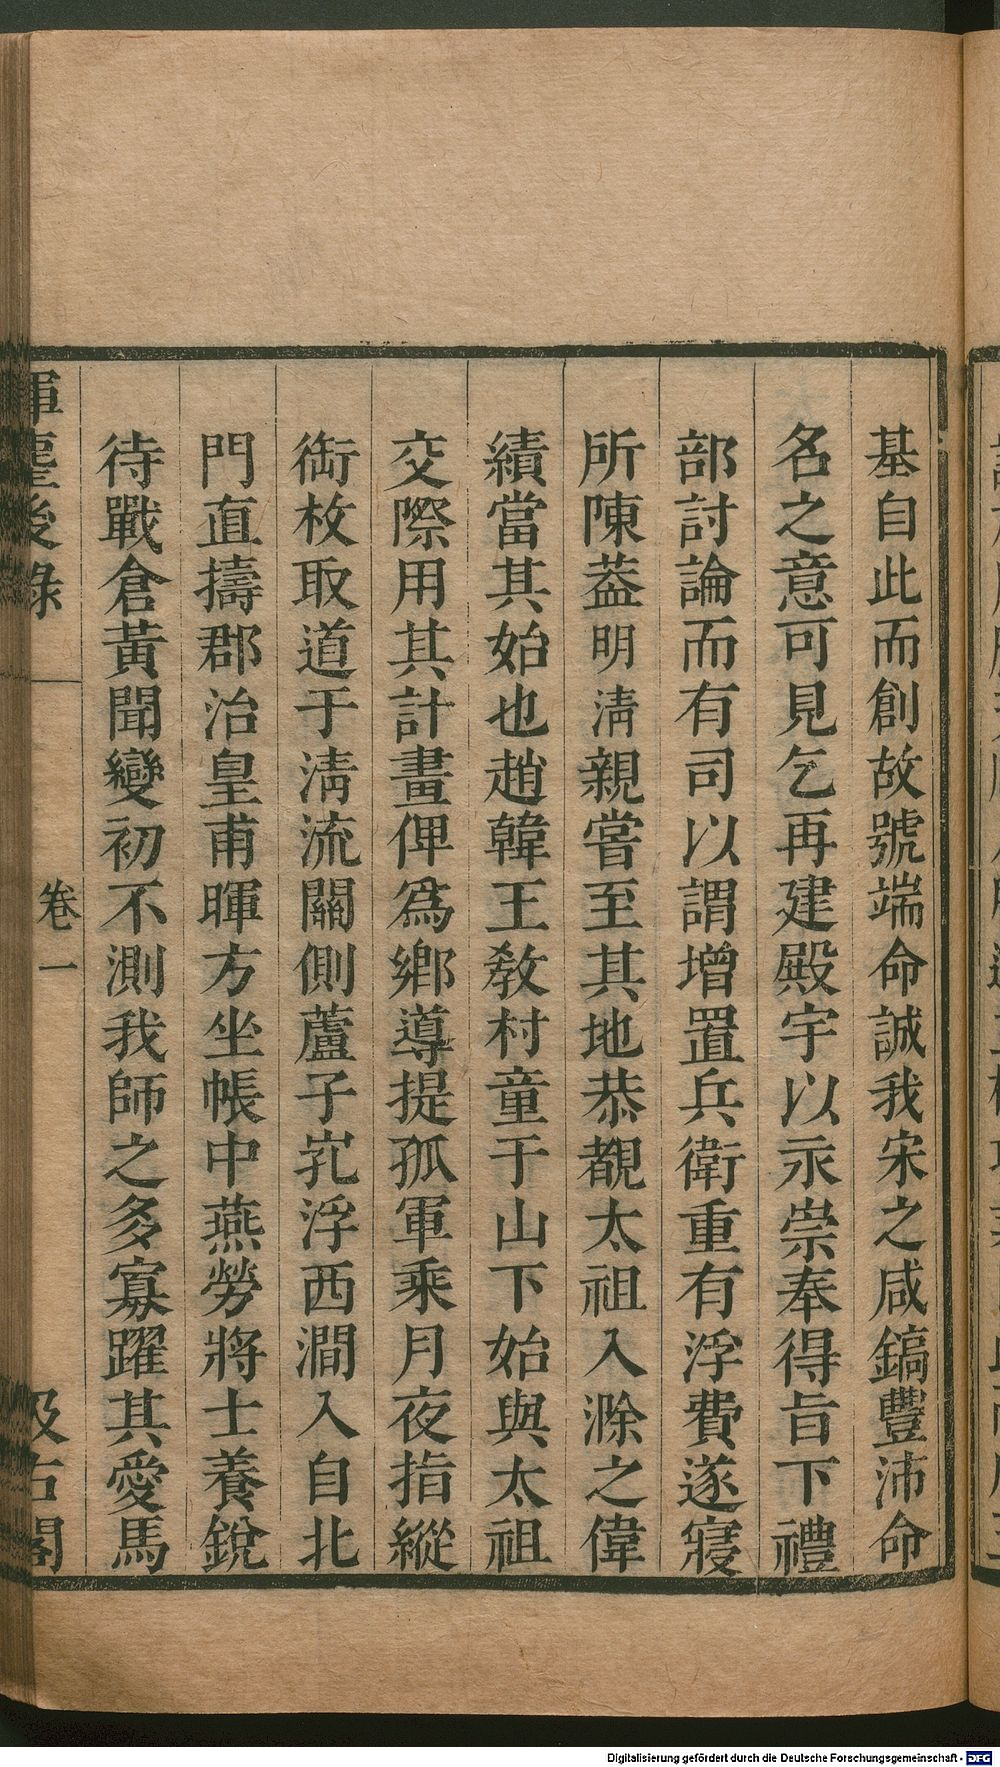 基自此而創故號端命誠我宋之咸鎬豐沛命
名之意可見乞再建殿宇以永崇奉得旨下禮
部討論而有司以謂增置兵衛重有浮費遂寢
所陳葢明淸親嘗至其地恭覩太祖入滁之偉
績當其始也趙韓王敎村童于山下始與太祖
交際用其計畫俾爲鄕導提孤軍乘月夜指縱
銜枚取道于淸流關側蘆子㲉浮西澗入自北
門直擣郡治皇甫暉方坐帳中燕勞將士養銳
待戰倉黃聞變初不測我師之多寡躍其愛馬
揮麈後錄 卷一 汲古閣
Digitalisierung gefördert durch die Deutsche Forschungsgemeinschaft - DFG